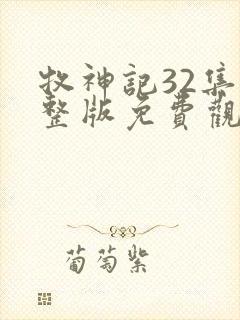 牧神記32集
整版免費觀
葡萄紫